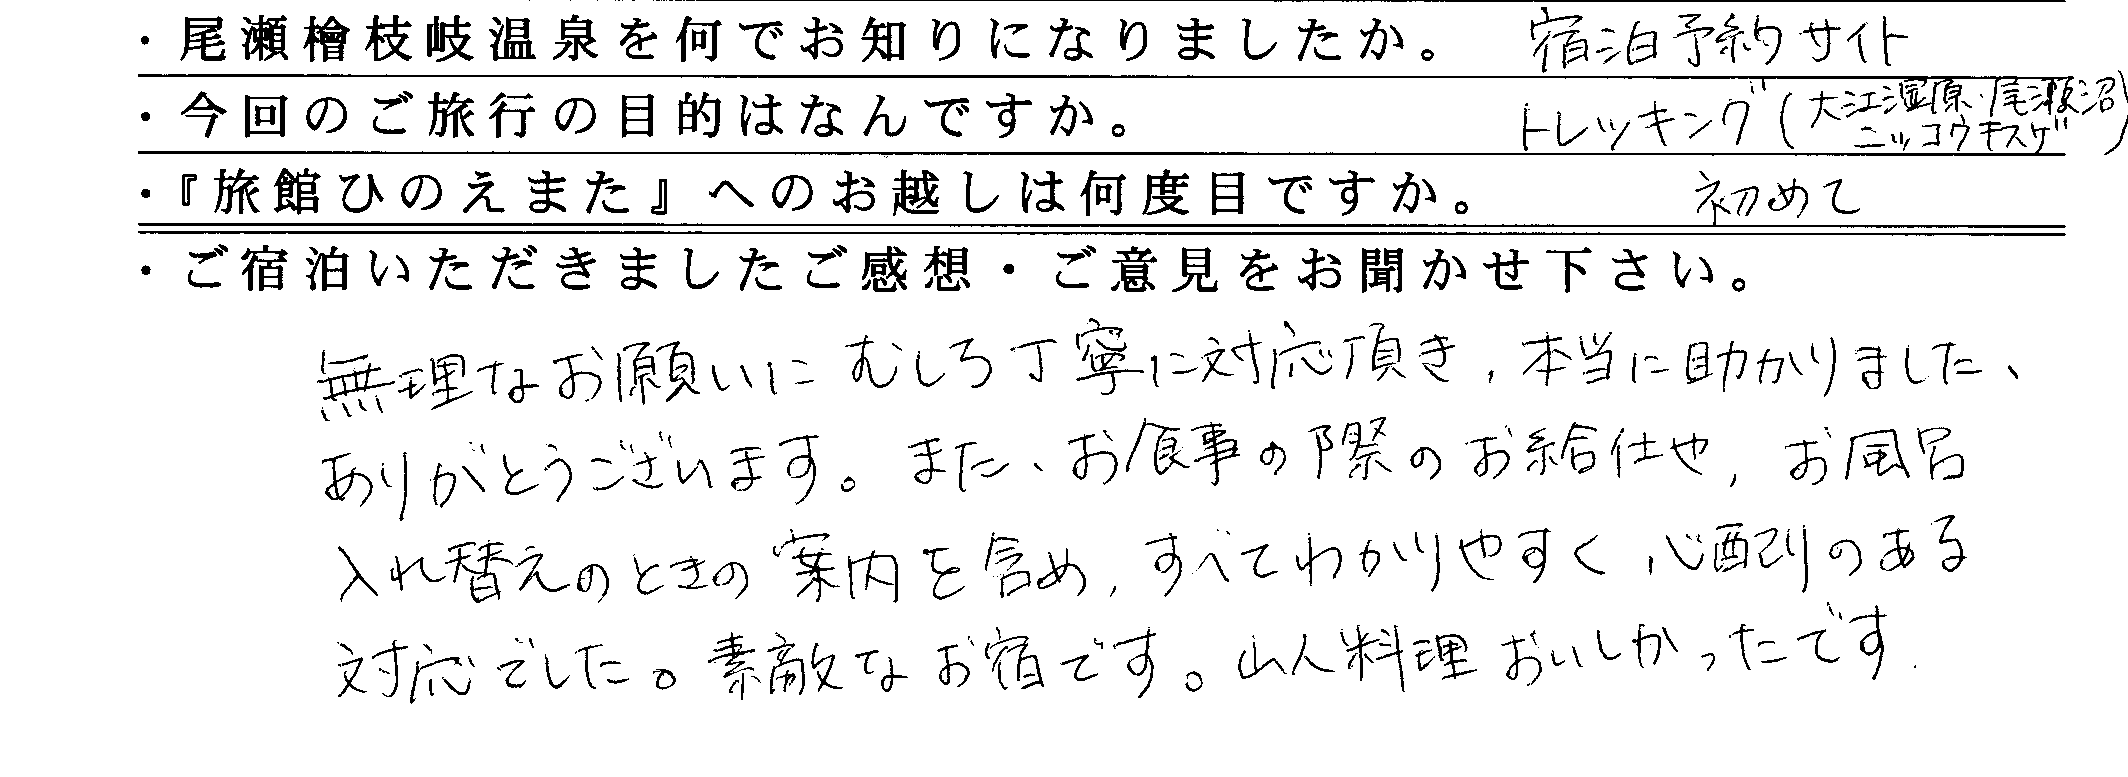 ・尾瀬檜枝岐温泉を何でお知りになりましたか。 宿泊予約サイト
・今回のご旅行の目的はなんですか。 トレッキング(大江湿原・尾瀬沼
ニッコウキスゲ)
・『旅館ひのえまた』へのお越しは何度目ですか。 初めて
・ご宿泊いただきましたご感想・ご意見をお聞かせ下さい。
無理なお願いにむしろ丁寧に対応頂き,本当に助かりました、
ありがとうございます。また、お食事の際のお給仕や,お風呂
入れ替えのときの案内を含め,すべてわかりやすく,心配りのある
対応でした。素敵なお宿です。山人料理おいしかったです.